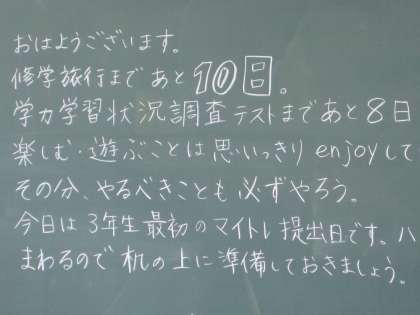 おはようございます。
修学旅行まであと10日。
学力学習状況調査テストまであと8日
楽しむ・遊ぶことは思いっきりenjoyして
その分、やるべきことも必ずやろう。
今日は3年生最初のマイトレ提出日です。ハ
まわるので机の上に準備しておきましょう。